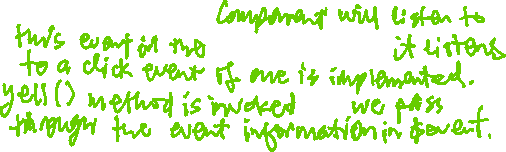 Component will listen to
this event in the it listens
to a click event if one is implemented.
yell() method is invoked we pass
through the event information in $event.